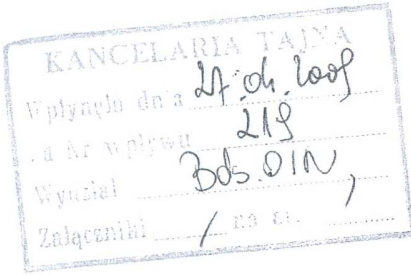 KANCELARIA TAJNA
Wpłynęło dnia 27.04.2009
Nr wpływu 219
Wydział Bds. OIN
Załączniki / na